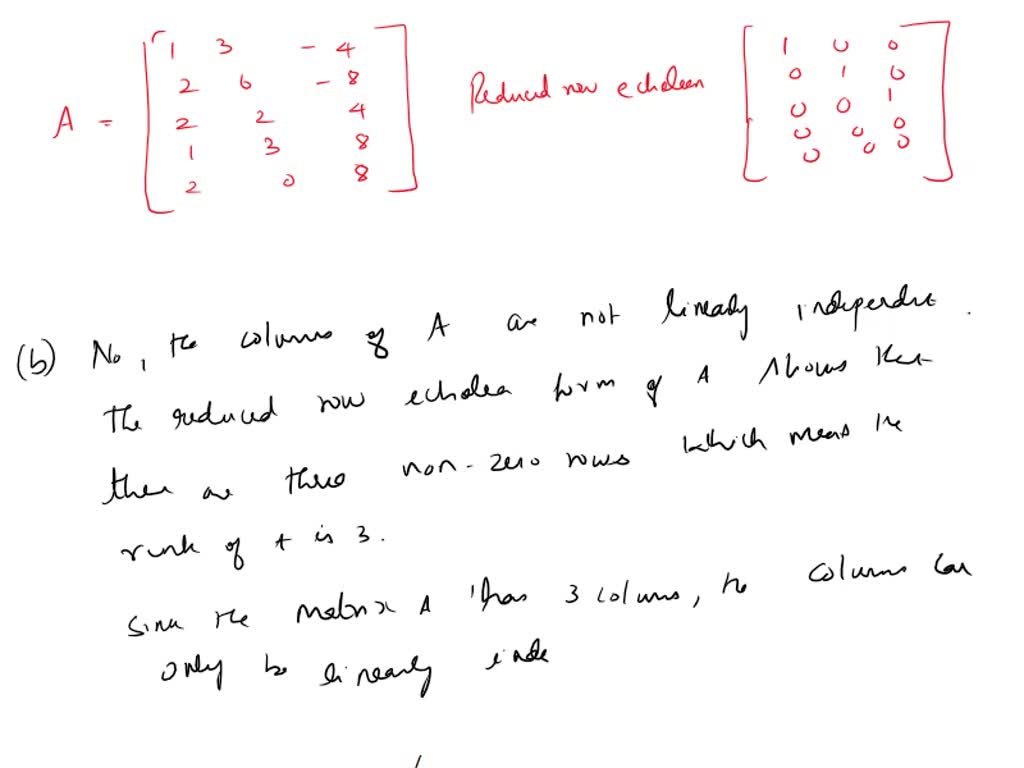 A = [ 1 3 -4
2 6 -8
2 2 4
1 3 8
2 0 8 ]
Reduced row echelean
[ 1 0 0
0 1 0
0 0 1
0 0 0
0 0 0 ]
(b) No, the columns of A are not linearly independent.
The reduced row echelea form of A shows that
there are three non-zero rows which means the
rank of A is 3.
Since the matrix A has 3 colums, the columns can
only be linearly inde